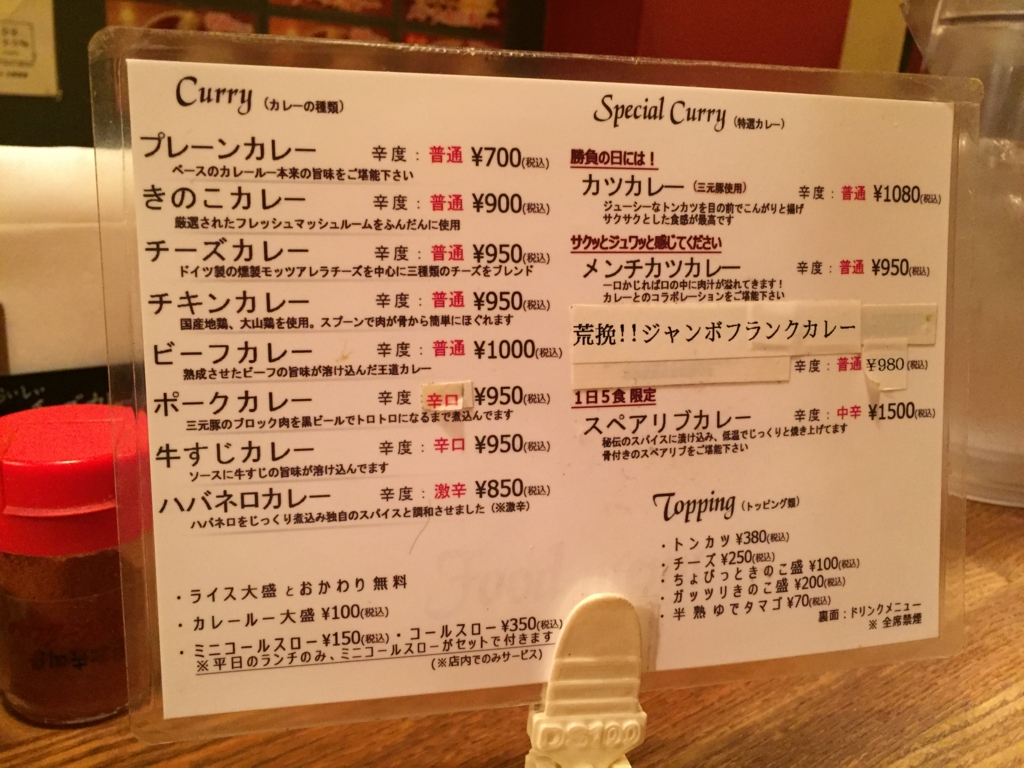 Curry (カレーの種類)
プレーンカレー 辛度：普通 ¥700(税込)
ベースのカレールー本来の旨味をご堪能下さい
きのこカレー 辛度：普通 ¥900(税込)
厳選されたフレッシュマッシュルームをふんだんに使用
チーズカレー 辛度：普通 ¥950(税込)
ドイツ製の燻製モッツアレラチーズを中心に三種類のチーズをブレンド
チキンカレー 辛度：普通 ¥950(税込)
国産地鶏、大山鶏を使用。スプーンで肉が骨から簡単にほぐれます
ビーフカレー 辛度：普通 ¥1000(税込)
熟成させたビーフの旨味が溶け込んだ王道カレー
ポークカレー 辛度：辛口 ¥950(税込)
三元豚のブロック肉を黒ビールでトロトロになるまで煮込んでます
牛すじカレー 辛度：辛口 ¥950(税込)
ソースに牛すじの旨味が溶け込んでます
ハバネロカレー 辛度：激辛 ¥850(税込)
ハバネロをじっくり煮込み独自のスパイスと調和させました（※激辛）
・ライス大盛とおかわり無料
・カレールー大盛 ¥100(税込)
・ミニコールスロー ¥150(税込)・コールスロー ¥350(税込)
※平日のランチのみ、ミニコールスローがセットで付きます
(※店内でのみサービス)
Special Curry (特選カレー)
勝負の日には！
カツカレー (三元豚使用) 辛度：普通 ¥1080(税込)
ジューシーなトンカツを目の前でこんがりと揚げ
サクサクとした食感が最高です
サクッとジュワッと感じてください
メンチカツカレー 辛度：普通 ¥950(税込)
一口かじれば口の中に肉汁が溢れてきます！
カレーとのコラボレーションをご堪能下さい
荒挽!!ジャンボフランクカレー
辛度：普通 ¥980(税込)
1日5食 限定
スペアリブカレー 辛度：中辛 ¥1500(税込)
秘伝のスパイスに漬け込み、低温でじっくりと焼き上げてます
骨付きのスペアリブをご堪能下さい
Topping (トッピング類)
・トンカツ ¥380(税込)
・チーズ ¥250(税込)
・ちょびっときのこ盛 ¥100(税込)
・ガッツリきのこ盛 ¥200(税込)
・半熟ゆでタマゴ ¥70(税込)
裏面：ドリンクメニュー
※全席禁煙
DS100